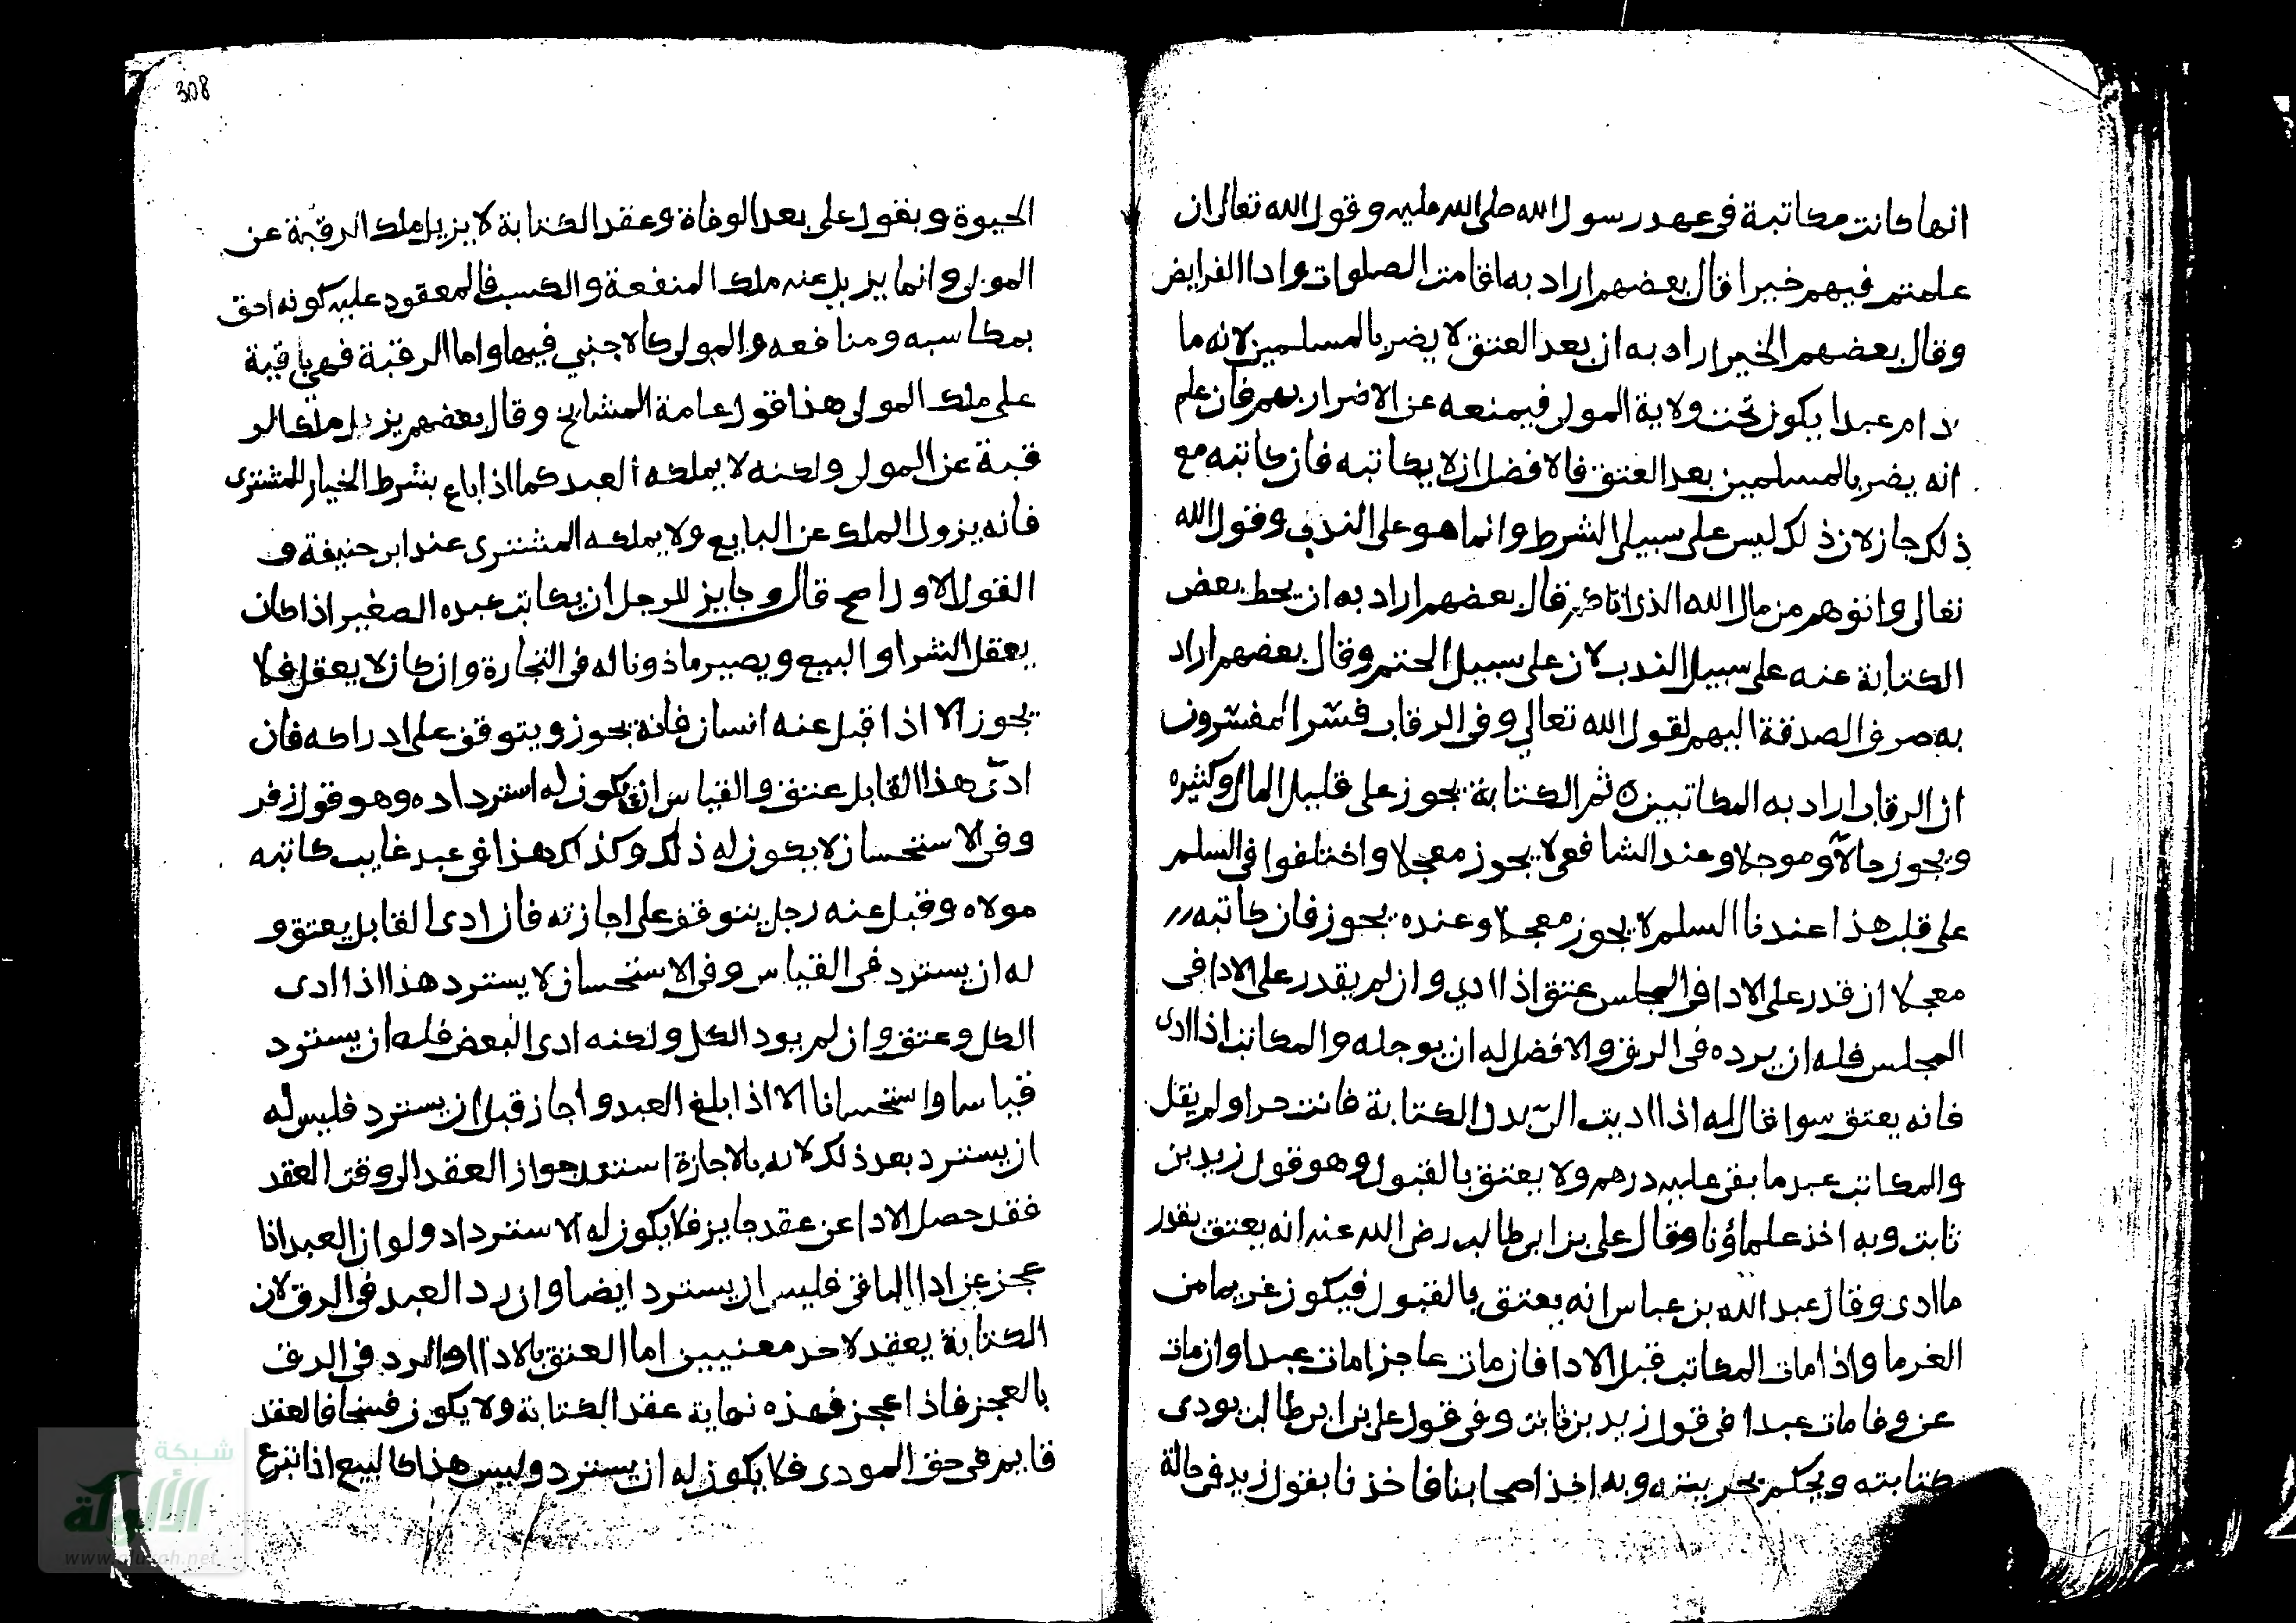 انها كانت مكاتبة في عهد رسول الله صلى الله عليه وقول الله تعالى ان
علمتم فيهم خيرا قال بعضهم اراد به اقامة الصلوات وادا الفرايض
وقال بعضهم الخير اراد به ان بعد العتق لا يضر بالمسلمين لانه ما
دام عبدا يكون تحت ولاية المولى فيمنعه عن الاضرار بهم فان علم
انه يضر بالمسلمين بعد العتق فالافضل ان لا يكاتبه فان كاتبه مع
ذلك جاز لان ذلك ليس على سبيل الشرط وانما هو على الندب وقول الله
تعالى واتوهم من مال الله الذى اتاكم قال بعضهم اراد به ان يحط بعض
الكتابة عنه على سبيل الندب لان على سبيل الحتم وقال بعضهم اراد
به صرف الصدقة اليهم لقول الله تعالى وفى الرقاب فسّر المفسّرون
ان الرقاب اراد به المكاتبين ٥ ثم الكتابة يجوز على قليل المال وكثيره
ويجوز حالّا وموجلا وعند الشافعى لا يجوز معجلا واختلفوا فى السلم
على قلب هذا عندنا السلم لا يجوز معجلا وعنده يجوز فان كاتبه
معجلا ان قدر على الادا فى المجلس عتق اذا ادى وان لم يقدر على الادا فى
المجلس فله ان يرده فى الرق والافضل له ان يوجله والمكاتب اذا ادى
فانه يعتق سوا قال له اذا اديت الىّ بدل الكتابة فانت حر او لم يقل
والمكاتب عبد ما بقى عليه درهم ولا يعتق بالقبول وهو قول زيد بن
ثابت وبه اخذ علماؤنا وقال على بن ابى طالب رضى الله عنه انه يعتق بقدر
ما ادى وقال عبد الله بن عباس انه يعتق بالقبول فيكون غريما من
الغرما واذا مات المكاتب قبل الادا فان مات عاجزا مات عبدا وان مات
عن وفا مات عبدا فى قول زيد بن ثابت وفى قول على بن ابى طالب يودى
كتابته ويحكم بحريته وبه اخذ اصحابنا فاخذنا بقول زيد فى حالة
308
الحيوة وبقول على بعد الوفاة وعقد الكتابة لا يزيل ملك الرقبة عن
المولى وانما يزيل عنه ملك المنفعة والكسب فالمعقود عليه كونه احق
بمكاسبه ومنافعه والمولى كالاجنبي فيها واما الرقبة فهى باقية
على ملك المولى هذا قول عامة المشايخ وقال بعضهم يزيل ملك الر
قبة عن المولى ولكنه لا يملكه العبد كما اذا باع بشرط الخيار للمشترى
فانه يزول الملك عن البايع ولا يملكه المشترى عند ابى حنيفة و
القول الاول اصح قال وجايز للرجل ان يكاتب عبده الصغير اذا كان
يعقل الشرا والبيع ويصير ماذونا له فى التجارة وان كان لا يعقل فلا
يجوز الا اذا قبل عنه انسان فانه يجوز ويتوقف على ادراكه فان
ادّى هذا القابل عتق والقياس ان يكون له استرداده وهو قول زفر
وفى الاستحسان لا يكون له ذلك وكذلك هذا فى عبد غايب كاتبه
مولاه وقبل عنه رجل يتوقف على اجازته فان ادى القابل يعتق و
له ان يسترد فى القياس وفى الاستحسان لا يسترد هذا اذا ادى
الكل وعتق وان لم يود الكل ولكنه ادى البعض فله ان يسترد
قياسا واستحسانا الا اذا بلغ العبد واجاز قبل ان يسترد فليس له
ان يسترد بعد ذلك لانه بالاجازة استند جواز العقد الى وقت العقد
فقد حصل الادا عن عقد جايز فلا يكون له الاسترداد ولو ان العبد اذا
عجز عن ادا الباقى فليس ان يسترد ايضا وان رد العبد فى الرق لان
الكتابة يعقد لاحد معنيين اما العتق بالادا او الرد فى الرق
بالعجز فاذا عجز فهذه نهاية عقد الكتابة ولا يكون فسخا فالعقد
قايم فى حق المودى فلا يكون له ان يسترد وليس هذا كالبيع اذا تبرع
شبكة
الألوكة